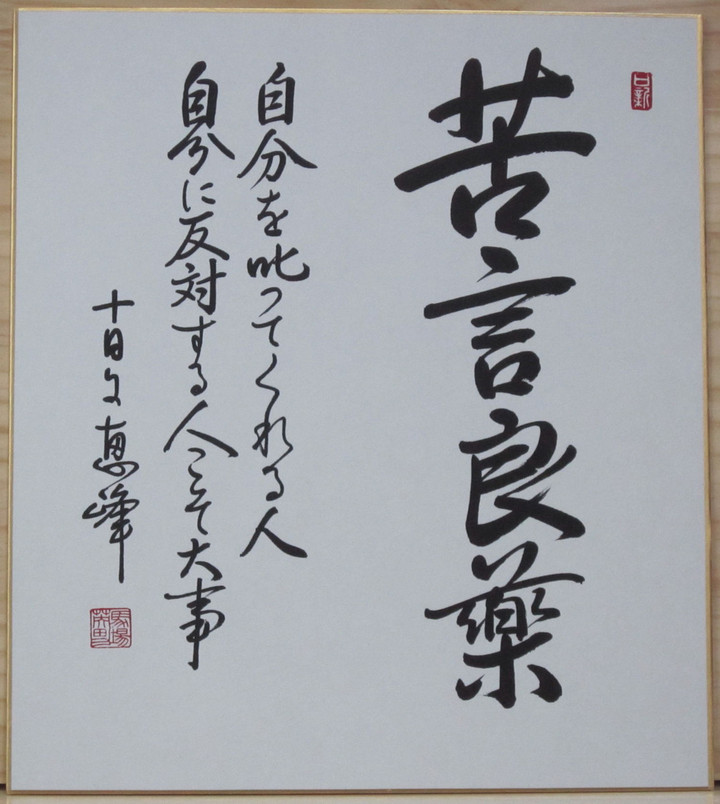 苦言良薬
自分を叱ってくれる人
自分に反対する人こそ大事
恵峰
日新